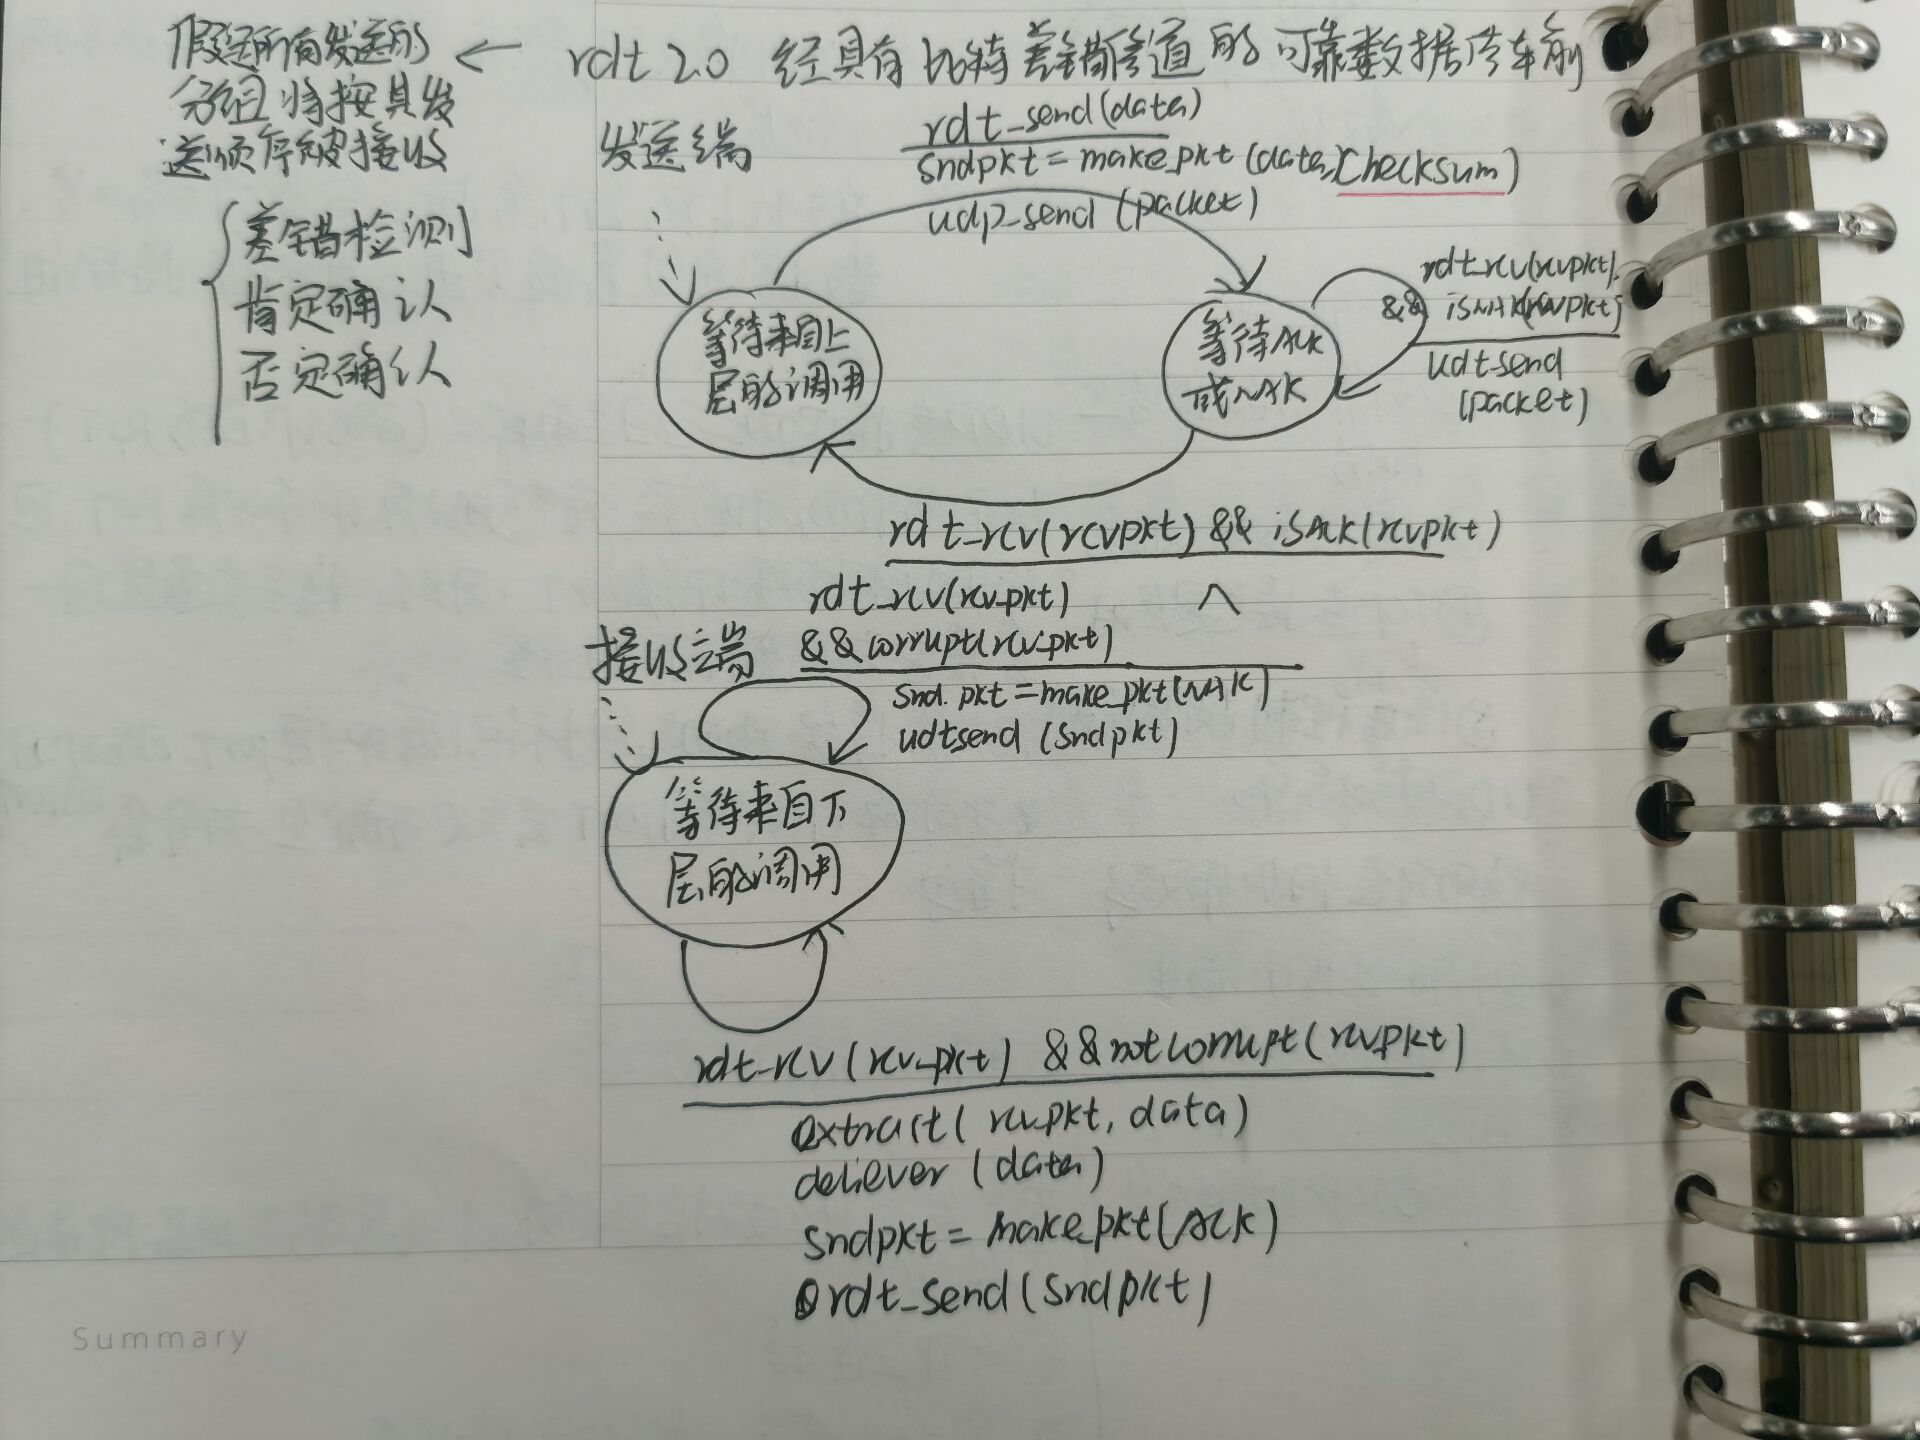 假设所有发送的
分组将按其发
送顺序被接收
差错检测
肯定确认
否定确认
← rdt 2.0 经具有比特差错信道的可靠数据传输
发送端
rdt_send(data)
sndpkt = make_pkt (data, checksum)
udp_send (packet)
等待来自上
层的调用
等待ACK
或NAK
rdt_rcv(rcvpkt)
&& isNAK(rcvpkt)
udt_send
(packet)
rdt_rcv(rcvpkt) && isACK(rcvpkt)
∧
接收端
rdt_rcv(rcv_pkt)
&& corrupt(rcv_pkt)
snd.pkt = make_pkt(NAK)
udtsend (sndpkt)
等待来自下
层的调用
rdt_rcv (rcv_pkt) && notcorrupt (rcv_pkt)
extract( rcv_pkt, data)
deliever (data)
sndpkt = make_pkt(ACK)
rdt_send(sndpkt)
Summary